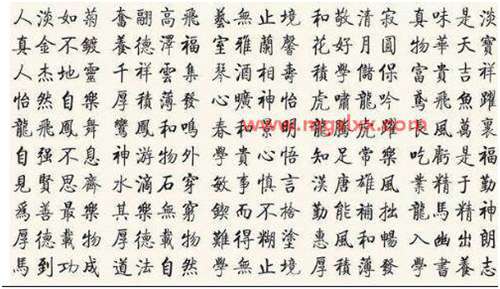 人淡如菊 奮翮高飛 藝無止境 和敬清寂 真味是淡
真金不鍍 養德澤福 室雅蘭馨 花好月圓 物華天寶
人杰地靈 千祥雲集 琴酒相壽 積學儲保 富貴吉祥
怡然自樂 厚積薄發 心曠神怡 虎嘯龍吟 鳶飛魚躍
龍飛鳳舞 鸞鳳和鳴 春和景明 萬裏
自强不息 神游物外 學貴心悟 知足常樂 吃虧是福
見賢思齊 水滴石穿 敏事慎言 漢唐雄風 業精于勤
為善最樂 其樂無窮 鍥而不捨 勤能補拙 龍馬精神
厚德載物 厚德載物 難得糊塗 惠風和暢 入幽出朗
馬到功成 道法自然 學無止境 厚積薄發 學書養志